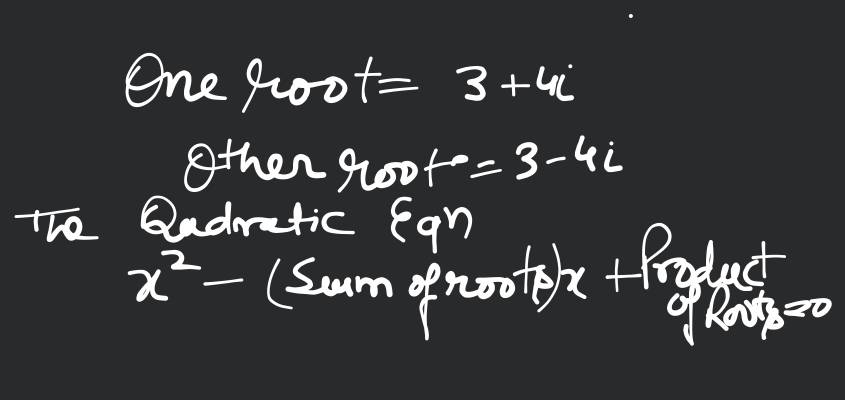 One root = 3+4i
Other root = 3-4i
The Qadratic Eqn
x² - (Sum of roots)x + Product of Roots = 0